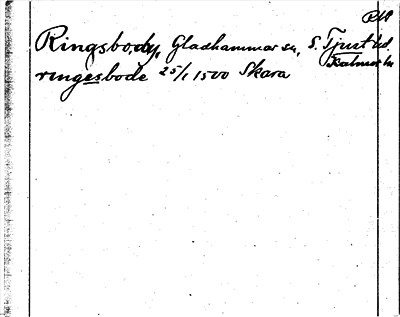 RM
Ringsbody, Gladhammar sn, S. Tjust hd,
Kalmar ln
ringesbode 25/1 1500 Skara